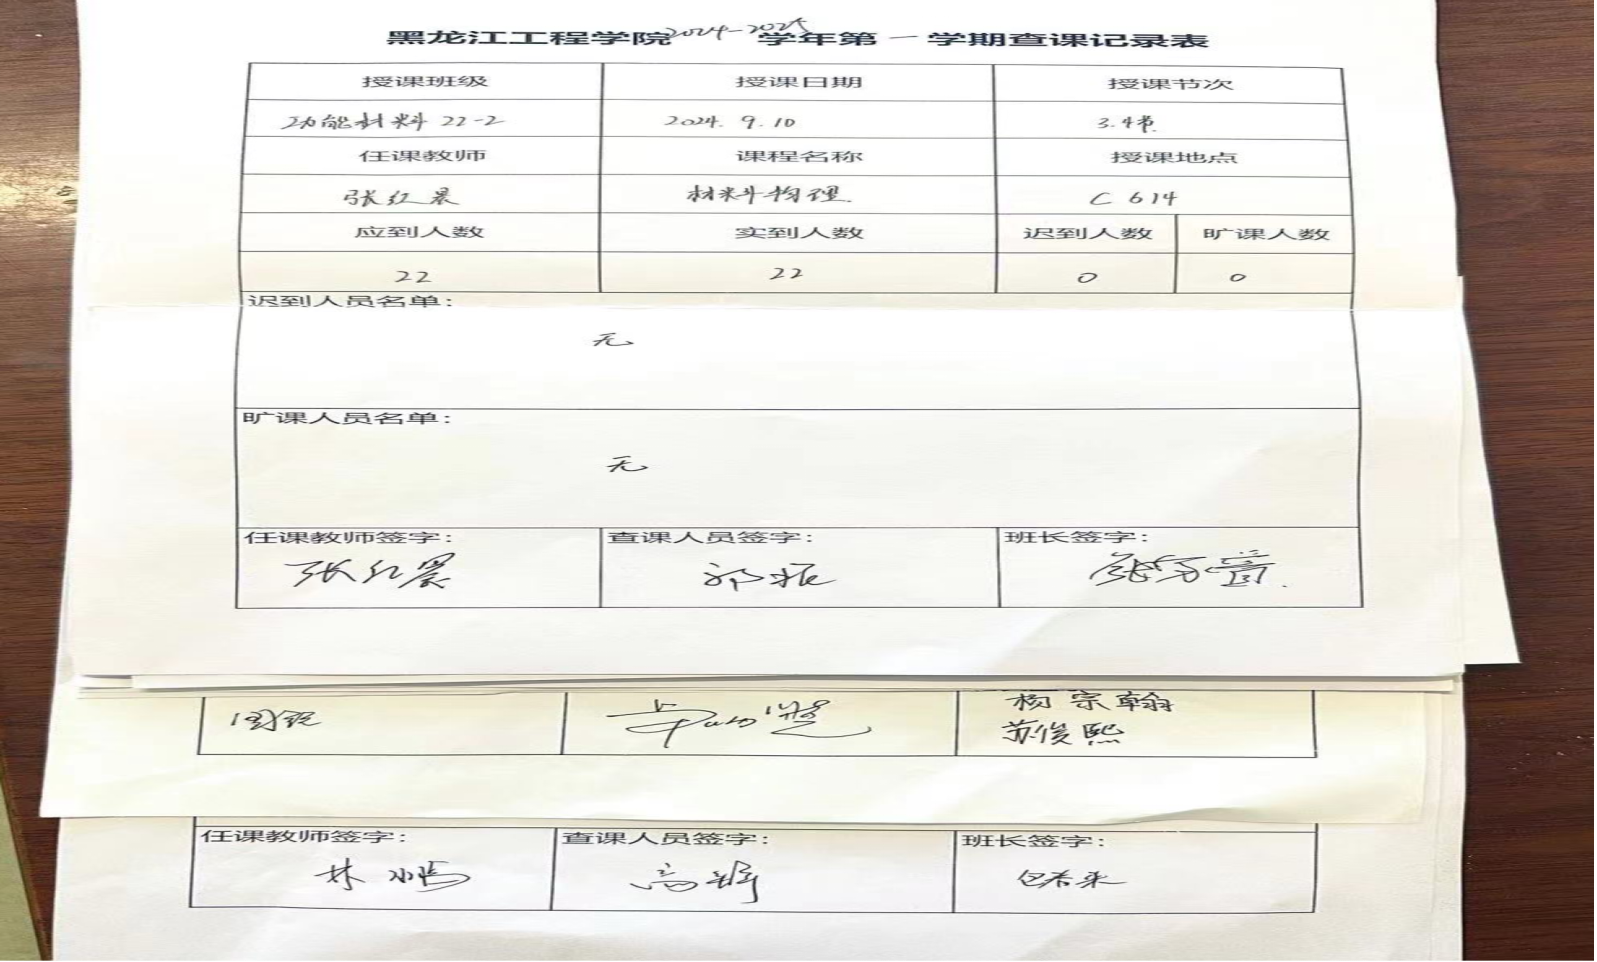 黑龙江工程学院2024-2025学年第一学期查课记录表
授课班级 授课日期 授课节次
功能材料22-2 2024.9.10 3.4节
任课教师 课程名称 授课地点
张红晨 材料物理 C614
应到人数 实到人数 迟到人数 旷课人数
22 22 0 0
迟到人员名单:
无
旷课人员名单:
无
任课教师签字: 查课人员签字: 班长签字:
张红晨 祁振
杨宗翰
苏俊熙
任课教师签字: 查课人员签字: 班长签字:
林鹏